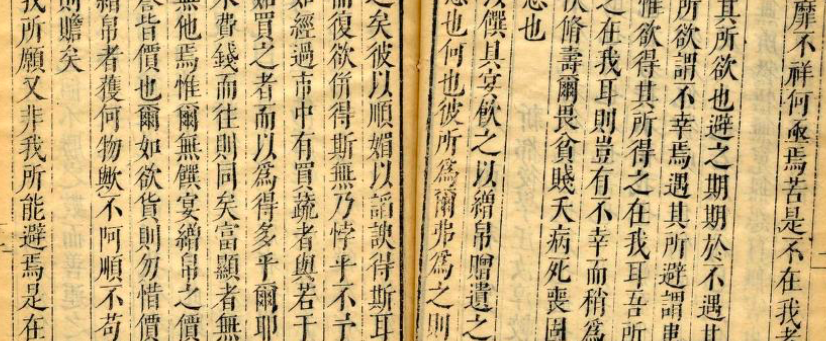 靡不祥何亟焉若是不在我者
其所欲也避之期期於不遇其
所欲謂不幸焉遇其所避謂
惟欲得其所得之在我耳吾所
之在我耳則豈有不幸而稍為
脩壽爾畏貧賤夭病死喪固
也
饌具宴飲之以繒帛贈遺之
也何也彼所為爾弗為之則
之矣彼以順媚以謟諛得斯耳
而復欲併得斯無乃悖乎不宁
如經過市中有買蔬者與若干
如買之者而以為得多乎爾耶
未費錢而往則同矣富顯者無
無他焉惟爾無饌宴繒帛之價
譽皆價也爾如欲貨則勿惜價
繒帛者獲何物歟不阿順不苟
則贍矣
我所願又非我所能避焉是在